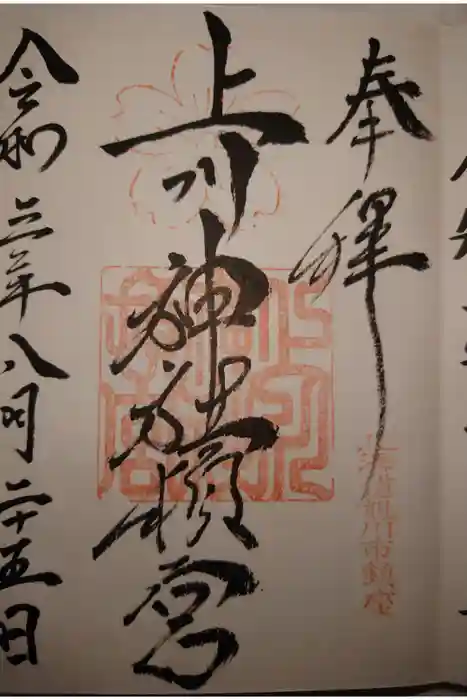 奉拝
北海道旭川市鎮座
上川神社頓宮
令和三年八月二十五日